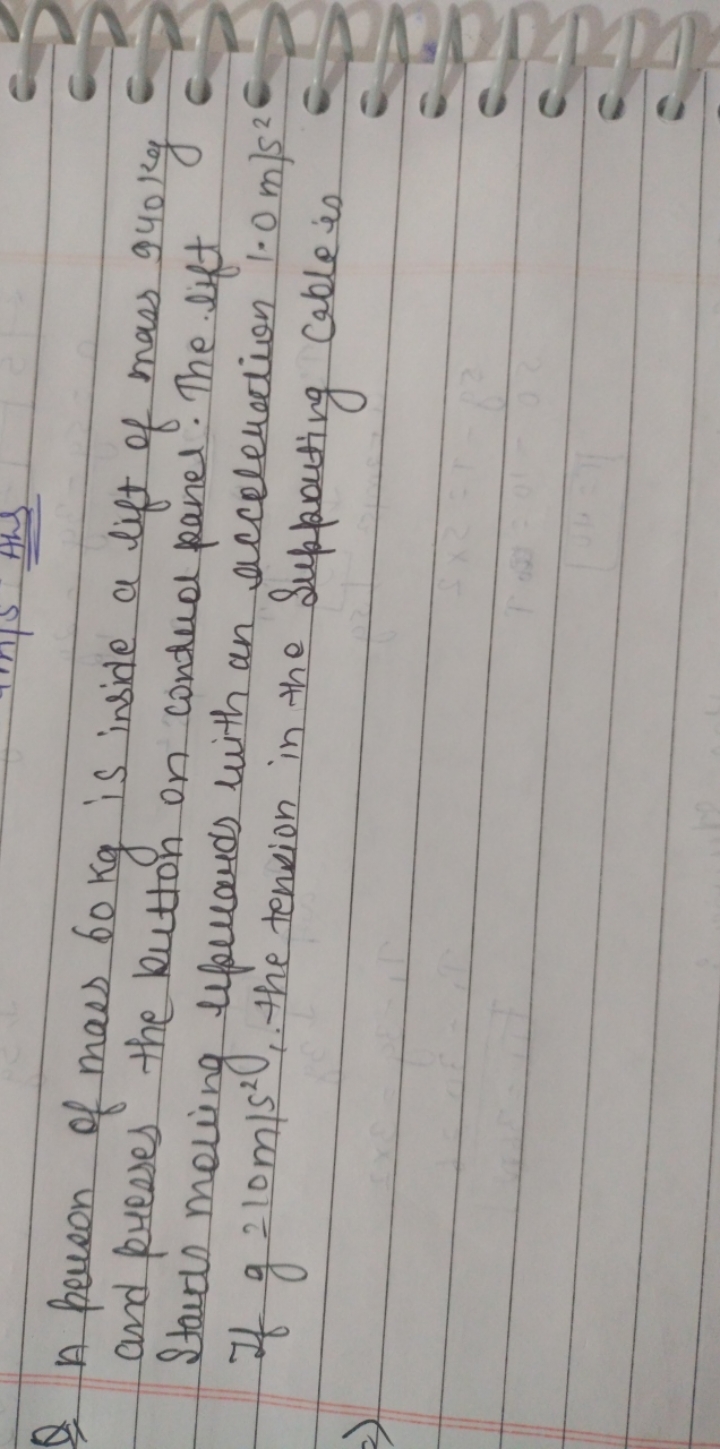 m/s Ans
Q A person of mass 60 kg is inside a lift of mass 940 kg
and presses the button on control panel. The lift
starts moving upwards with an acceleration 1.0 m/s²
If g = 10 m/s², the tension in the supporting cable is